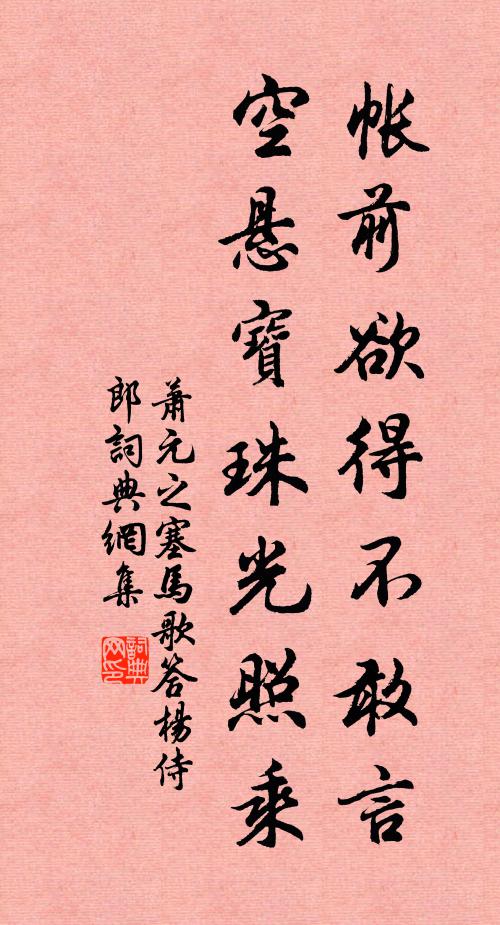 帐前欲得不敢言
空悬寶珠光照乘
蕭元之塞馬歌答楊侍
郎詞典網集
詞典
网印